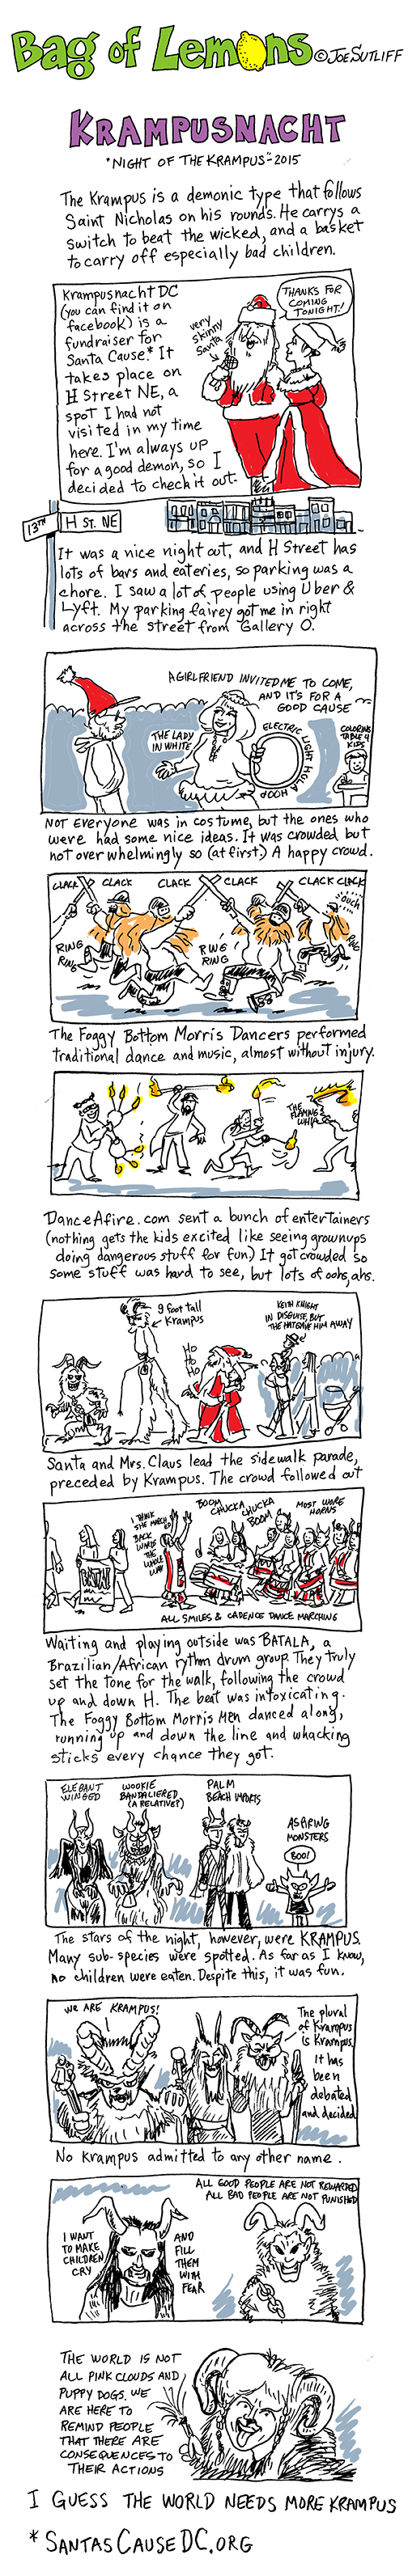 Bag of Lemons © Joe Sutliff
KRAMPUSNACHT
"NIGHT OF THE KRAMPUS"- 2015
The Krampus is a demonic type that follows
Saint Nicholas on his rounds. He carrys a
switch to beat the wicked, and a basket
to carry off especially bad children.
Krampusnacht DC
(you can find it on
facebook) is a
fundraiser for
Santa Cause* It
takes place on
H Street NE, a
spot I had not
visited in my time
here. I'm always up
for a good demon, so I
decided to check it out.
very
skinny
Santa
THANKS FOR
COMING
TONIGHT!
13TH
H ST. NE
It was a nice night out, and H Street has
lots of bars and eateries, so parking was a
chore. I saw a lot of people using Uber &
Lyft. My parking fairey got me in right
across the street from Gallery O.
A GIRLFRIEND INVITED ME TO COME,
AND IT'S FOR A
GOOD CAUSE
THE LADY
IN WHITE
ELECTRIC LIGHT HOLA
HOOP
COLORING
TABLE 4
KIDS
NOT Everyone was in costume, but the ones who
were had some nice ideas. It was crowded but
not overwhelmingly so (at first) A happy crowd.
CLACK CLACK CLACK CLACK CLACK CLACK
ouch
RING
RING
RING
RING
The Foggy Bottom Morris Dancers performed
traditional dance and music, almost without injury.
THE
FLAMING
WHIP
DanceAfire.com sent a bunch of enterTainers
(nothing gets the kids excited like seeing grownups
doing dangerous stuff for fun) It got crowded so
some stuff was hard to see, but lots of oohs, ahs.
9 foot tall
Krampus
Ho
Ho
Ho
KEITH KNIGHT
IN DISGUISE, BUT
THE HAT GAVE HIM AWAY
Santa and Mrs. Claus lead the sidewalk parade,
preceded by Krampus. The crowd followed out
BATALA
I THINK
SHE MARCHED
BACK
WARDS
THE
WHOLE
WAY
BOOM
CHUCKA CHUCKA
BOOM
MOST WORE
HORNS
ALL SMILES & CADENCE DANCE MARCHING
Waiting and playing outside was BATALA, a
Brazilian/African rythm drum group. They truly
set the tone for the walk, following the crowd
up and down H. The beat was intoxicating.
The Foggy Bottom Morris Men danced along,
running up and down the line and whacking
sticks every chance they got.
ELEGANT
WINGED
WOOKIE
BANDALIERED
(A RELATIVE?)
PALM
BEACH IMPORTS
ASPIRING
MONSTERS
BOO!
The stars of the night, however, were KRAMPUS.
Many sub-species were spotted. As far as I know,
no children were eaten. Despite this, it was fun.
WE ARE KRAMPUS!
The plural
of Krampus
is Krampus.
It has
been
debated
and decided
No Krampus admitted to any other name.
I WANT
TO MAKE
CHILDREN
CRY
AND
FILL
THEM
WITH
FEAR
ALL GOOD PEOPLE ARE NOT REWARDED
ALL BAD PEOPLE ARE NOT PUNISHED
THE WORLD IS NOT
ALL PINK CLOUDS AND
PUPPY DOGS. WE
ARE HERE TO
REMIND PEOPLE
THAT THERE ARE
CONSEQUENCES TO
THEIR ACTIONS
I GUESS THE WORLD NEEDS MORE KRAMPUS
* SANTASCAUSEDC.ORG